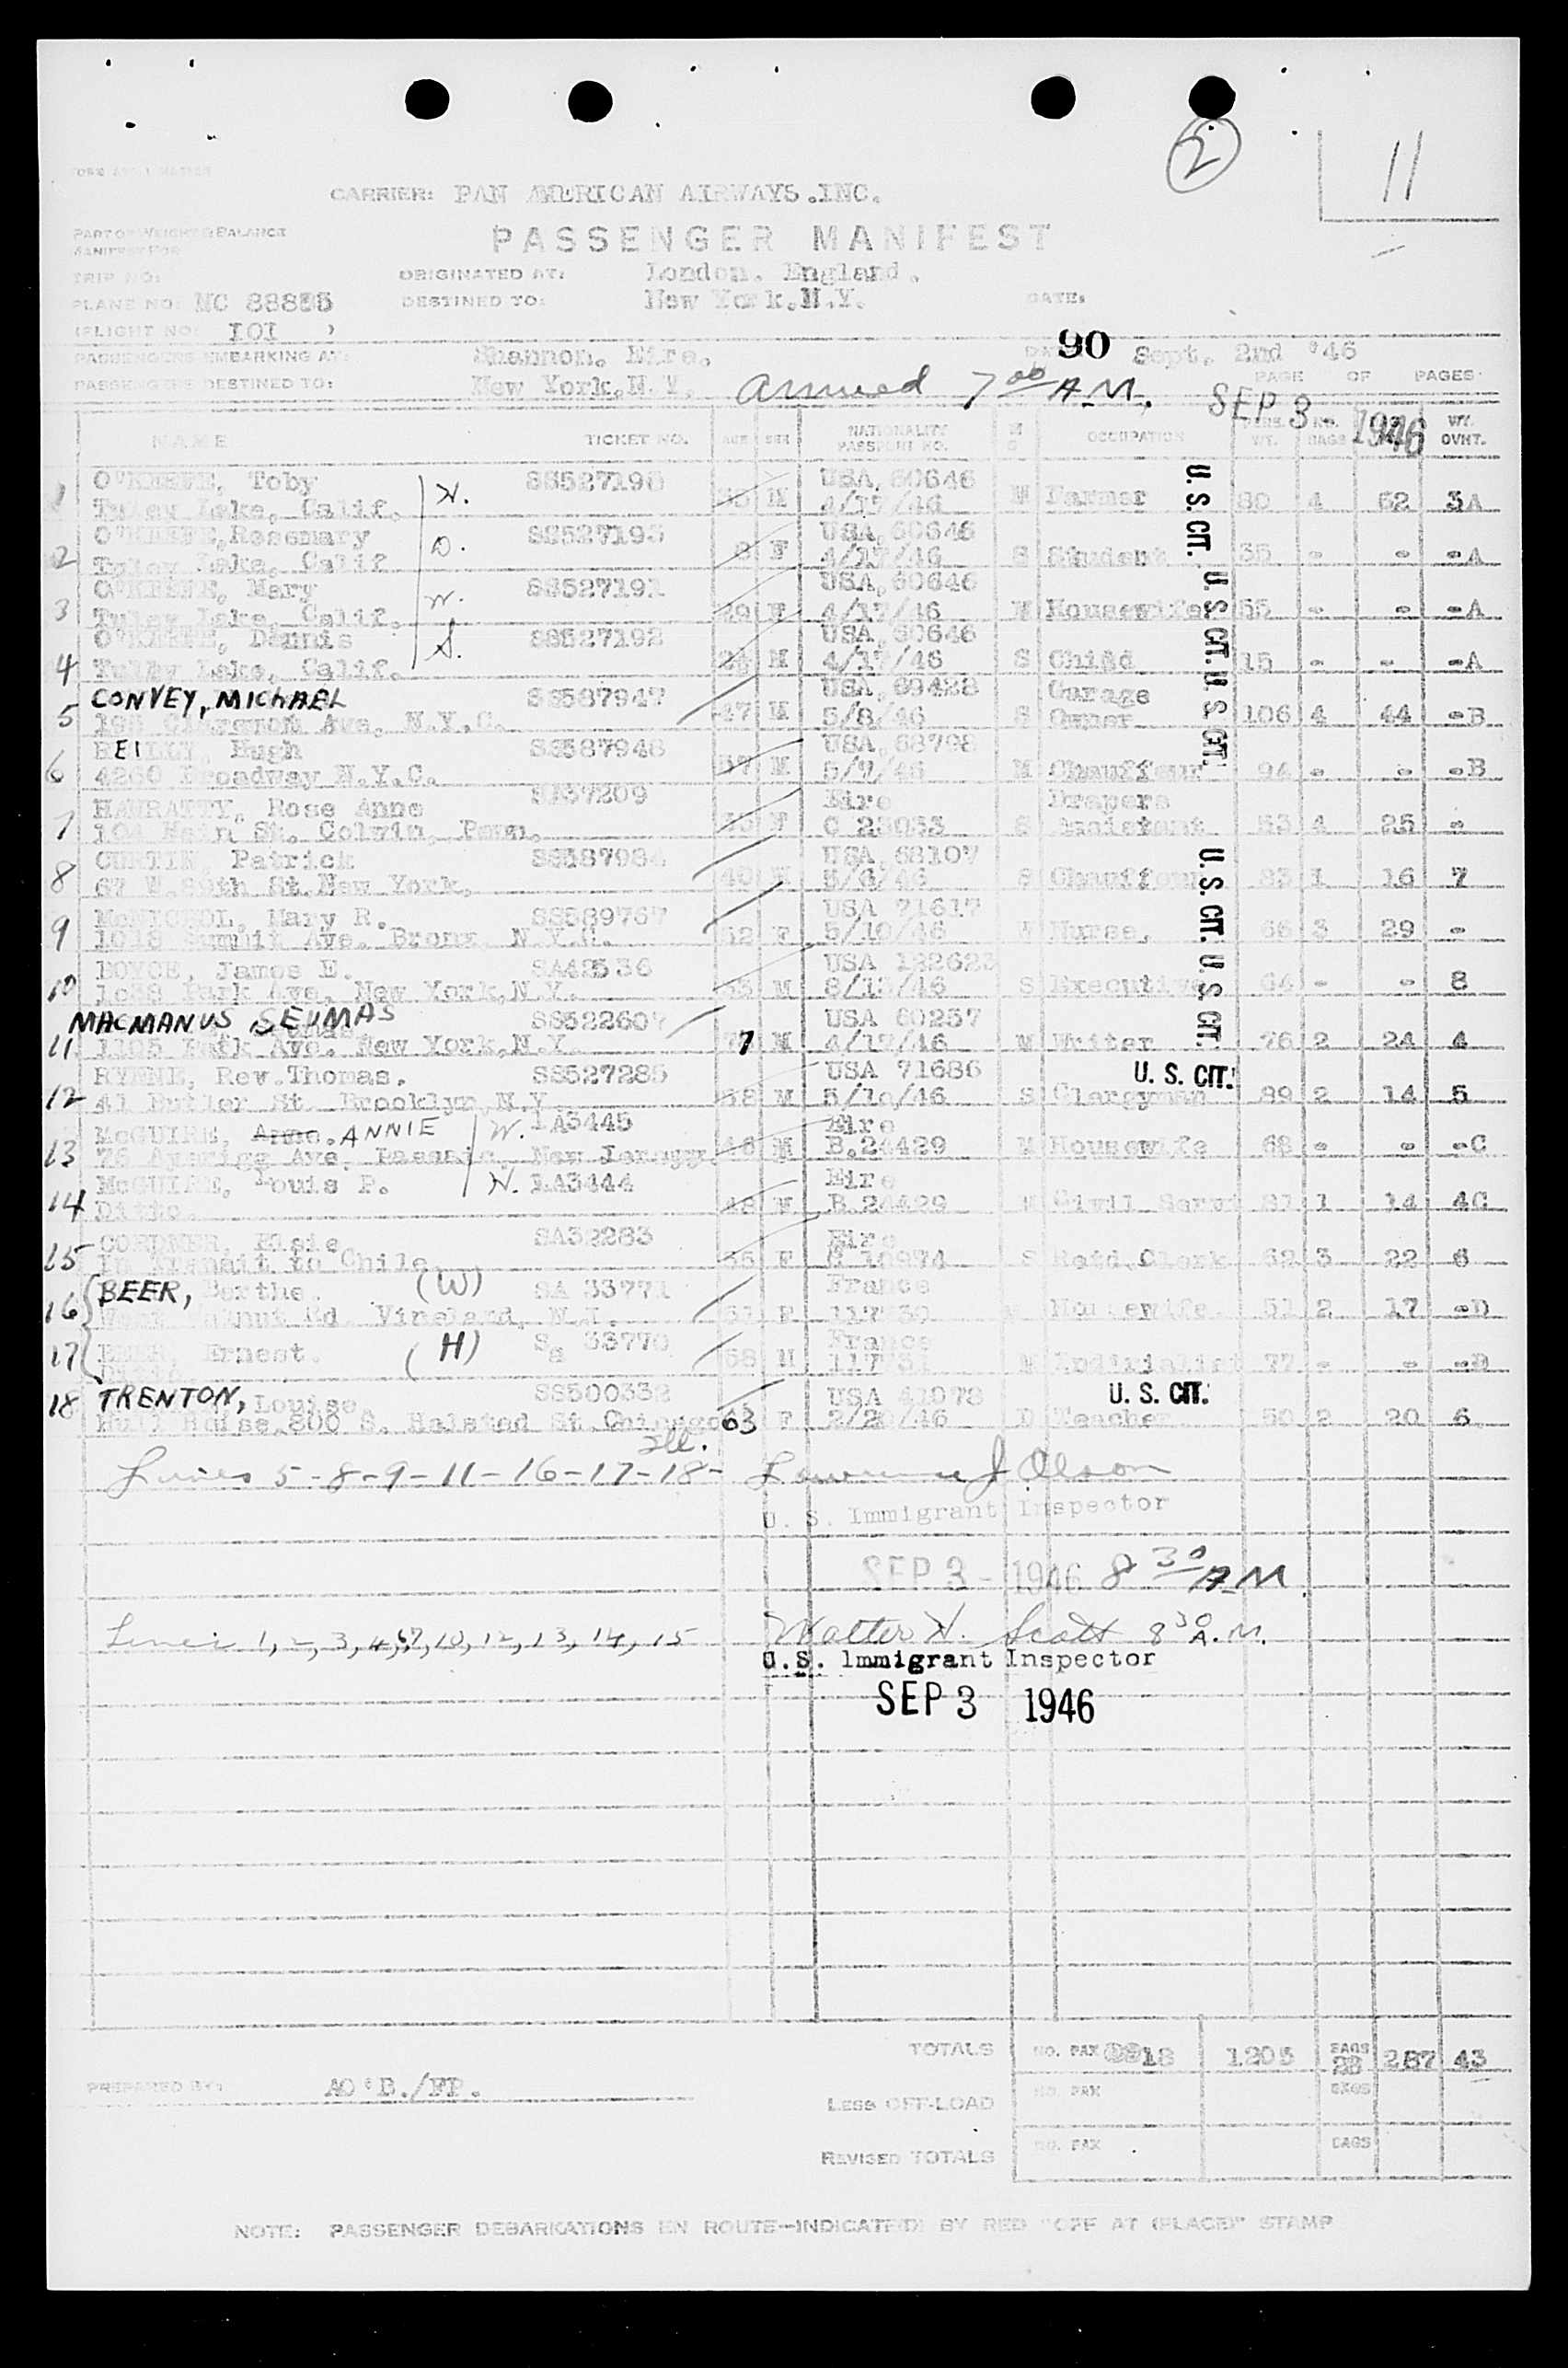 2
11
CARRIER: PAN AMERICAN AIRWAYS.INC.
PASSENGER MANIFEST
TRIP NO:
ORIGINATED AT: London. England.
PLANE NO: NC 88855
DESTINED TO: New York.N.Y.
DATE:
(FLIGHT NO: IOI )
PASSENGERS EMBARKING AT: Shannon. Eire.
90 Sept. 2nd '46
PASSENGERS DESTINED TO: New York.N.Y.
Arrived 7 00 A.M.
PAGE OF PAGES
SEP 3 - 1946
NAME TICKET NO. AGE SEX NATIONALITY PASSPORT NO. OCCUPATION WT. NO. BAGS WT. OVHT.
1 O'KEEFE, Toby H. SS527190 USA, 60646
Tuley Lake, Calif. M 4/17/46 M Farmer 80 4 62 3A
2 O'KEEFE, Rosemary D. SS527193 USA, 60646
Tuley Lake, Calif F 4/17/46 S Student 35 - - -A
3 O'KEEFE, Mary W. SS527191 USA, 60646
Tuley Lake, Calif. 29 F 4/17/46 M Housewife 55 - - -A
4 O'KEEFE, Dennis S. SS527192 USA, 60646
Tuley Lake, Calif. M 4/17/46 S Child 15 - - -A
5 CONVEY, MICHAEL SS587947 USA, 69428 Garage
Ave, N.Y.C. 47 M 5/8/46 S Owner 106 4 44 -B
6 REILLY, Hugh SS587948 USA, 68798
4260 Broadway N.Y.C. 57 M 5/7/46 M Chauffeur 94 - - -B
7 HANRATTY, Rose Anne SA37209 Eire Drapers
104 Main St. Colwin, Penn. F C 23033 S Assistant 53 4 25 -
8 CURTIN, Patrick SS587984 USA, 68107
67 W.89th St.New York, 40 M 5/6/46 S Chauffeur 83 1 16 7
9 McNICHOL, Mary R. SS589767 USA 71617
1018 Summit Ave. Bronx N.Y.C. 52 F 5/10/46 W Nurse, 66 3 29 -
10 BOYCE, James E. SA42536 USA 182623
1038 Park Ave. New York,N.Y. M 8/13/46 S Executive 64 - - 8
11 MACMANUS, SEUMAS SS522607 USA 60257
1105 Park Ave. New York,N.Y. 7 M 4/17/46 M Writer 76 2 24 4
12 RYNNE, Rev.Thomas. SS527285 USA 71686
41 Butler St. Brooklyn,N.Y. M 5/10/46 S Clergyman 89 2 14 5
13 McGUIRE, Anne. ANNIE W. LA3445 Eire
Ave. Passaic, New Jersey. 46 M B.24429 M Housewife 68 - - -C
14 McGUIRE, Louis P. H. LA3444 Eire
Ditto. 48 M B.24429 M Civil Servt 81 1 14 4C
15 Elsie SA32283 Eire
In Transit to Chile. F C 10974 S Retd.Clerk 62 3 22 6
16 BEER, Berthe. (W) SA 33771 France
Walnut Rd. Vineland, N.J. F 117 30 Housewife. 51 2 17 -D
17 BEER, Ernest. (H) Sa 33770 France
M 117 31 M 77 - - -D
18 TRENTON, Louise. SS500332 USA 41978
Hull House.800 S. Halsted St.Chicago Ill. 63 F 2/20/46 Teacher 50 2 20 6
U. S. CIT. U. S. CIT. U. S. CIT.
U. S. CIT. U. S. CIT.
U. S. CIT.
U. S. CIT.
Lines 5-8-9-11-16-17-18- Lawrence J Olson
U. S. Immigrant Inspector
SEP 3 - 1946 8 30 A.M.
Lines 1, 2, 3, 4, 6, 7, 10, 12, 13, 14, 15 Walter H. Scott 8 30 A.M.
U.S. Immigrant Inspector
SEP 3 1946
TOTALS NO. PAX 18 1205 BAGS 28 287 43
PREPARED BY: AO'B./FP.
Less OFF-LOAD NO. PAX BAGS
REVISED TOTALS NO. PAX BAGS
NOTE: PASSENGER DEBARKATIONS EN ROUTE—INDICATED BY RED "OFF AT (PLACE)" STAMP